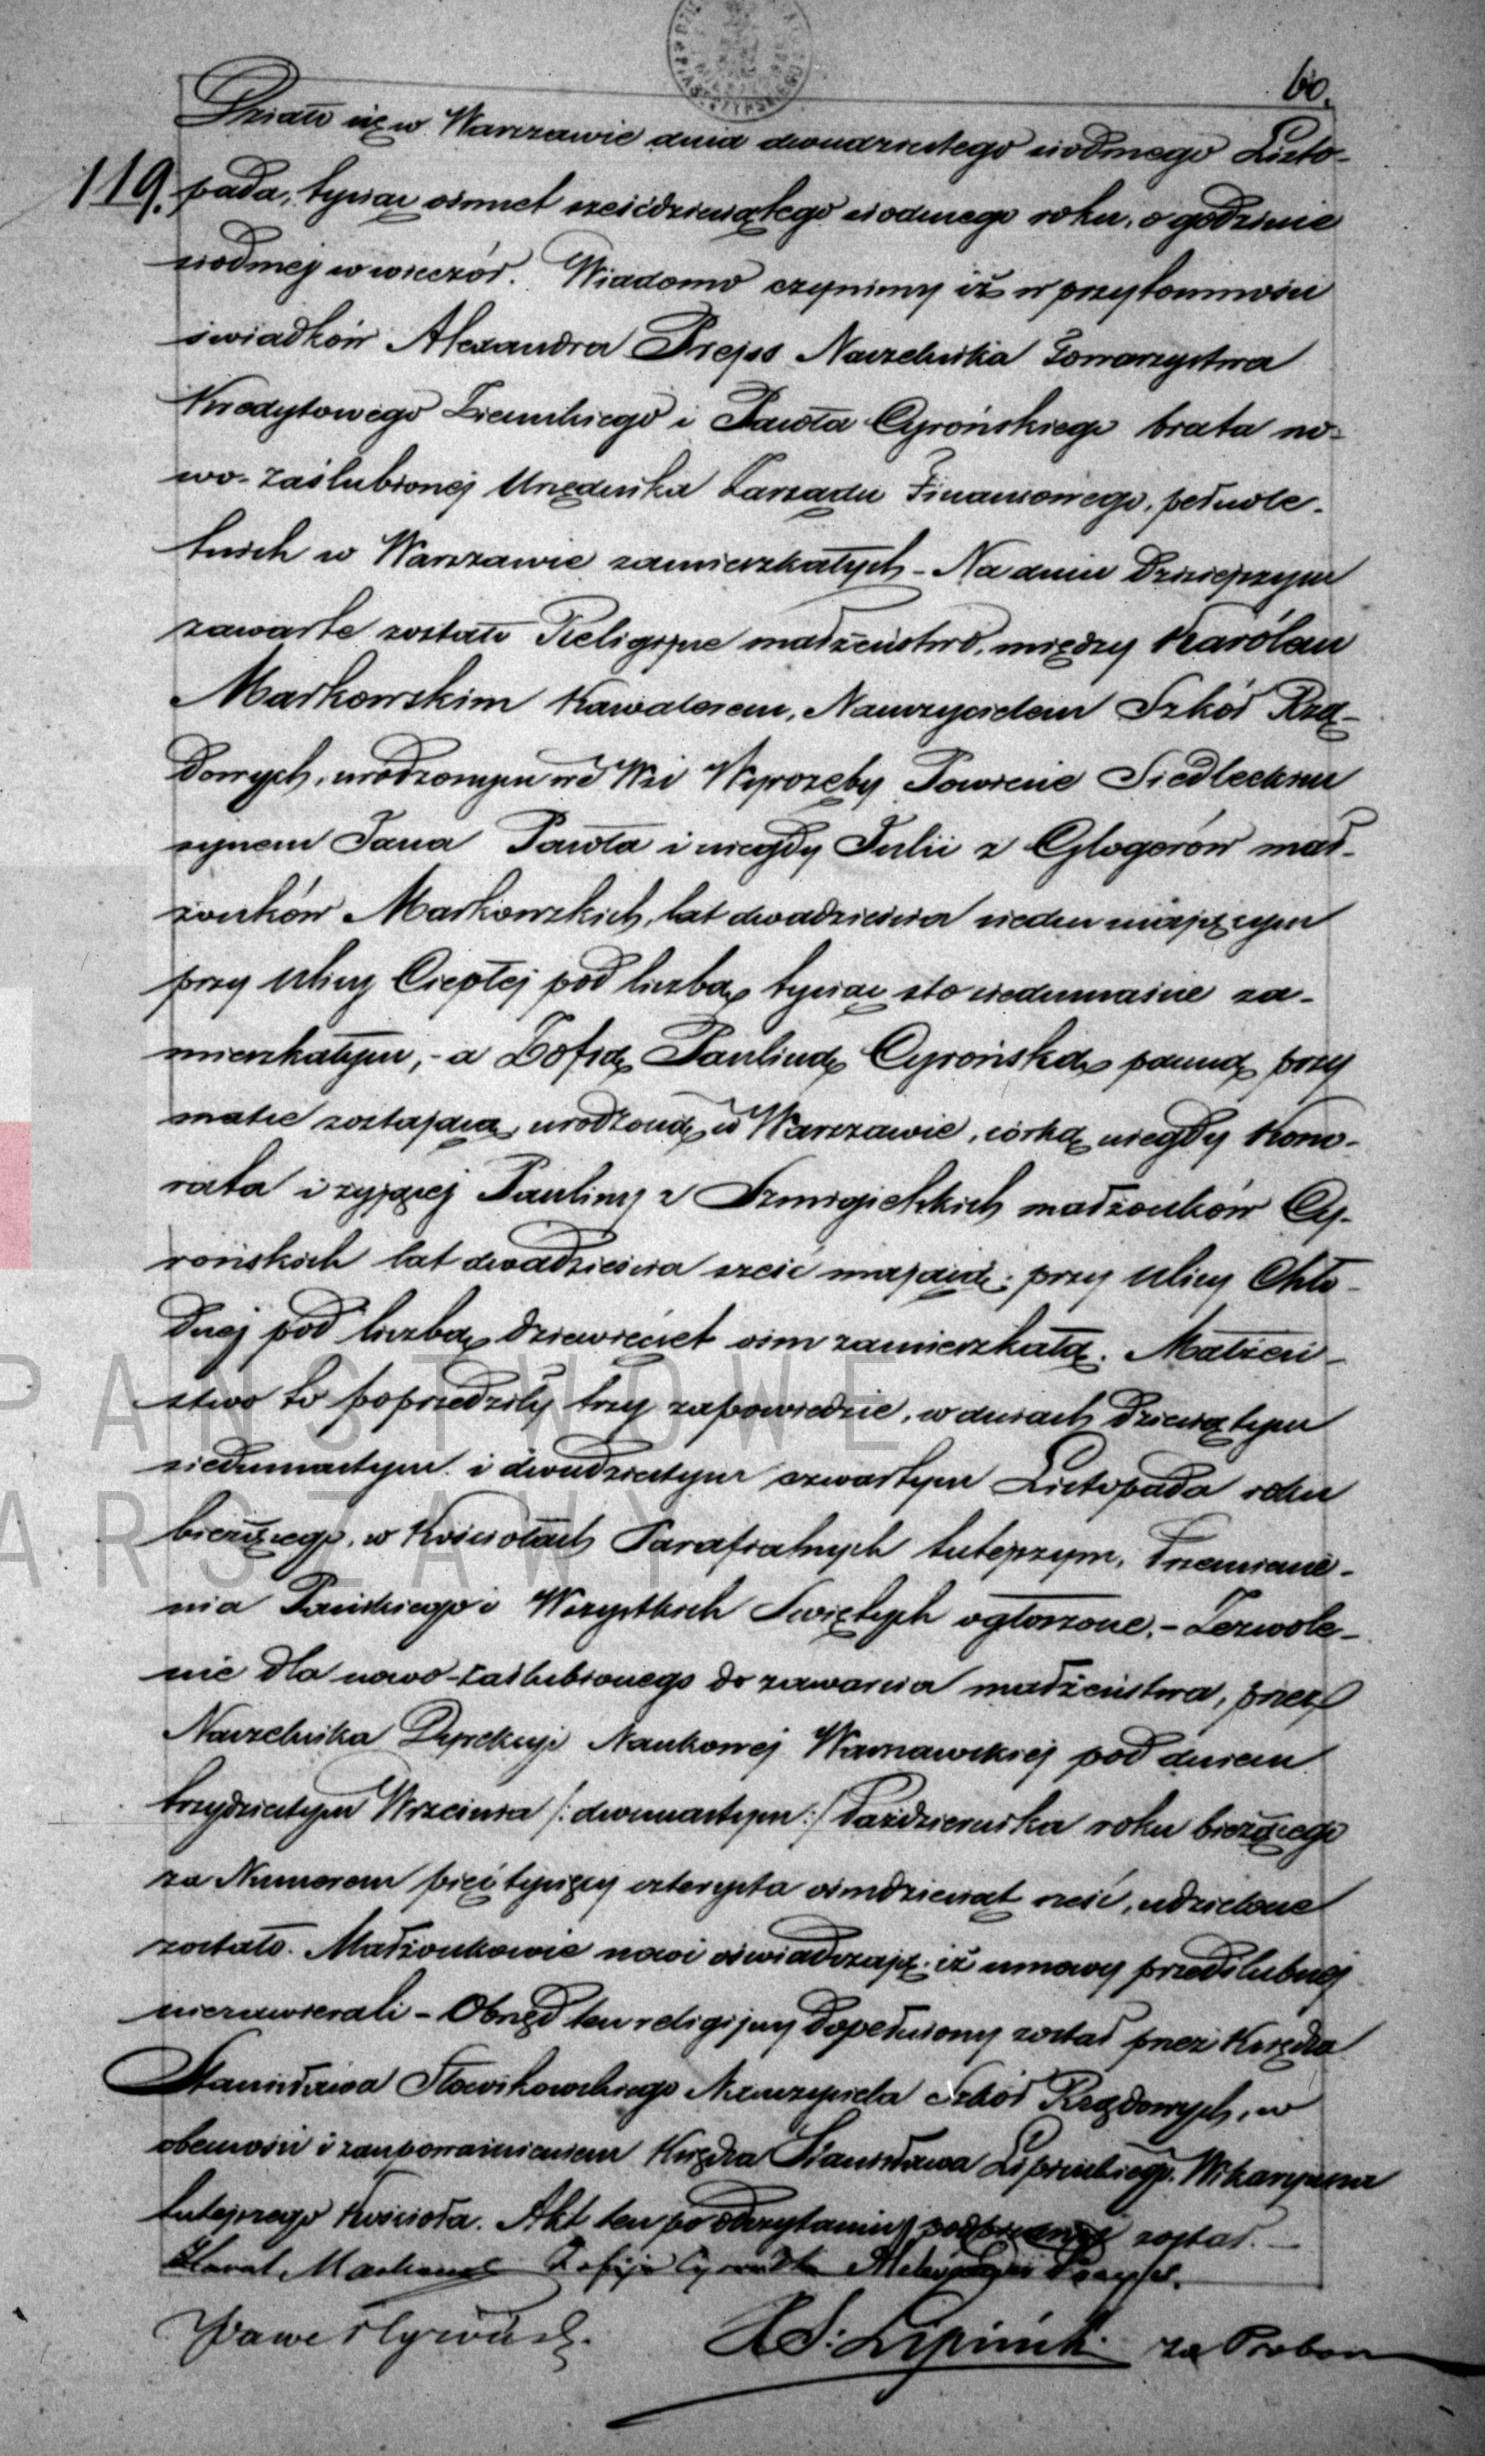 60.
Działo się w Warszawie dnia dwudziestego siódmego Listo-
119. pada, tysiąc ośmset sześćdziesiątego siódmego roku, o godzinie
siódmej wwieczór. Wiadomo czynimy iż w przytomności
świadków Alexandra Prejss Naczelnika Towarzystwa
Kredytowego Ziemskiego i Pawła Cyrońskiego brata no-
wo-zaślubionej Urzędnika Zarządu Finansowego, pełnole-
tnich w Warszawie zamieszkałych – Na dniu dzisiejszym
zawarte zostało Religijne małżeństwo, między Karólem
Markowskim Kawalerem, Nauczycielem Szkół Rzą-
dowych, urodzonym we Wsi Wyrozęby Powiecie Siedleckim
synem Jana Pawła i niegdy Julii z Glogerów mał-
żonków Markowskich, lat dwadzieścia siedem mającym
przy Ulicy Ciepłej pod liczbą tysiąc sto siedmnaście za-
mieszkałym, – a Zofią Pauliną Cyrońską panną przy
matce zostającą, urodzoną w Warszawie, córką niegdy Hono-
rata i żyjącej Pauliny z Szmigielskich małżonków Cy-
rońskich lat dwadzieścia sześć mającą, przy Ulicy Chło-
dnej pod liczbą dziewięćset ośm zamieszkałą. Małżeń-
stwo to poprzedziły trzy zapowiedzie, w dniach dziesiątym
siedmnastym i dwudziestym czwartym Listopada roku
bieżącego, w Kościołach Parafialnych tutejszym, Przemienie-
nia Pańskiego i Wszystkich Świętych ogłoszone. – Zezwole-
nie dla nowo-zaślubionego do zawarcia małżeństwa, przez
Naczelnika Dyrekcji Naukowej Warszawskiej pod dniem
trzydziestym Września /: dwunastym :/ Października roku bieżącego
za Numerem pięć tysięcy czterysta ośmdziesiąt sześć, udzielone
zostało. Małżonkowie nowi oświadczają, iż umowy przedślubnej
niezawierali – Obrzęd ten religijny dopełniony został przez Księdza
Stanisława Słowikowskiego Nauczyciela Szkół Rządowych, w
obecności i zaupoważnieniem Księdza Stanisława Lipińskiego Wikaryusza
tutejszego Kościoła. Akt ten po odczytaniu podpisany został. –
Karol Markowski Zofija Cyrońska Prejss.
Paweł Cyroński. X S: Lipiński za Probosz
PAŃSTWOWE
ARSZAWY